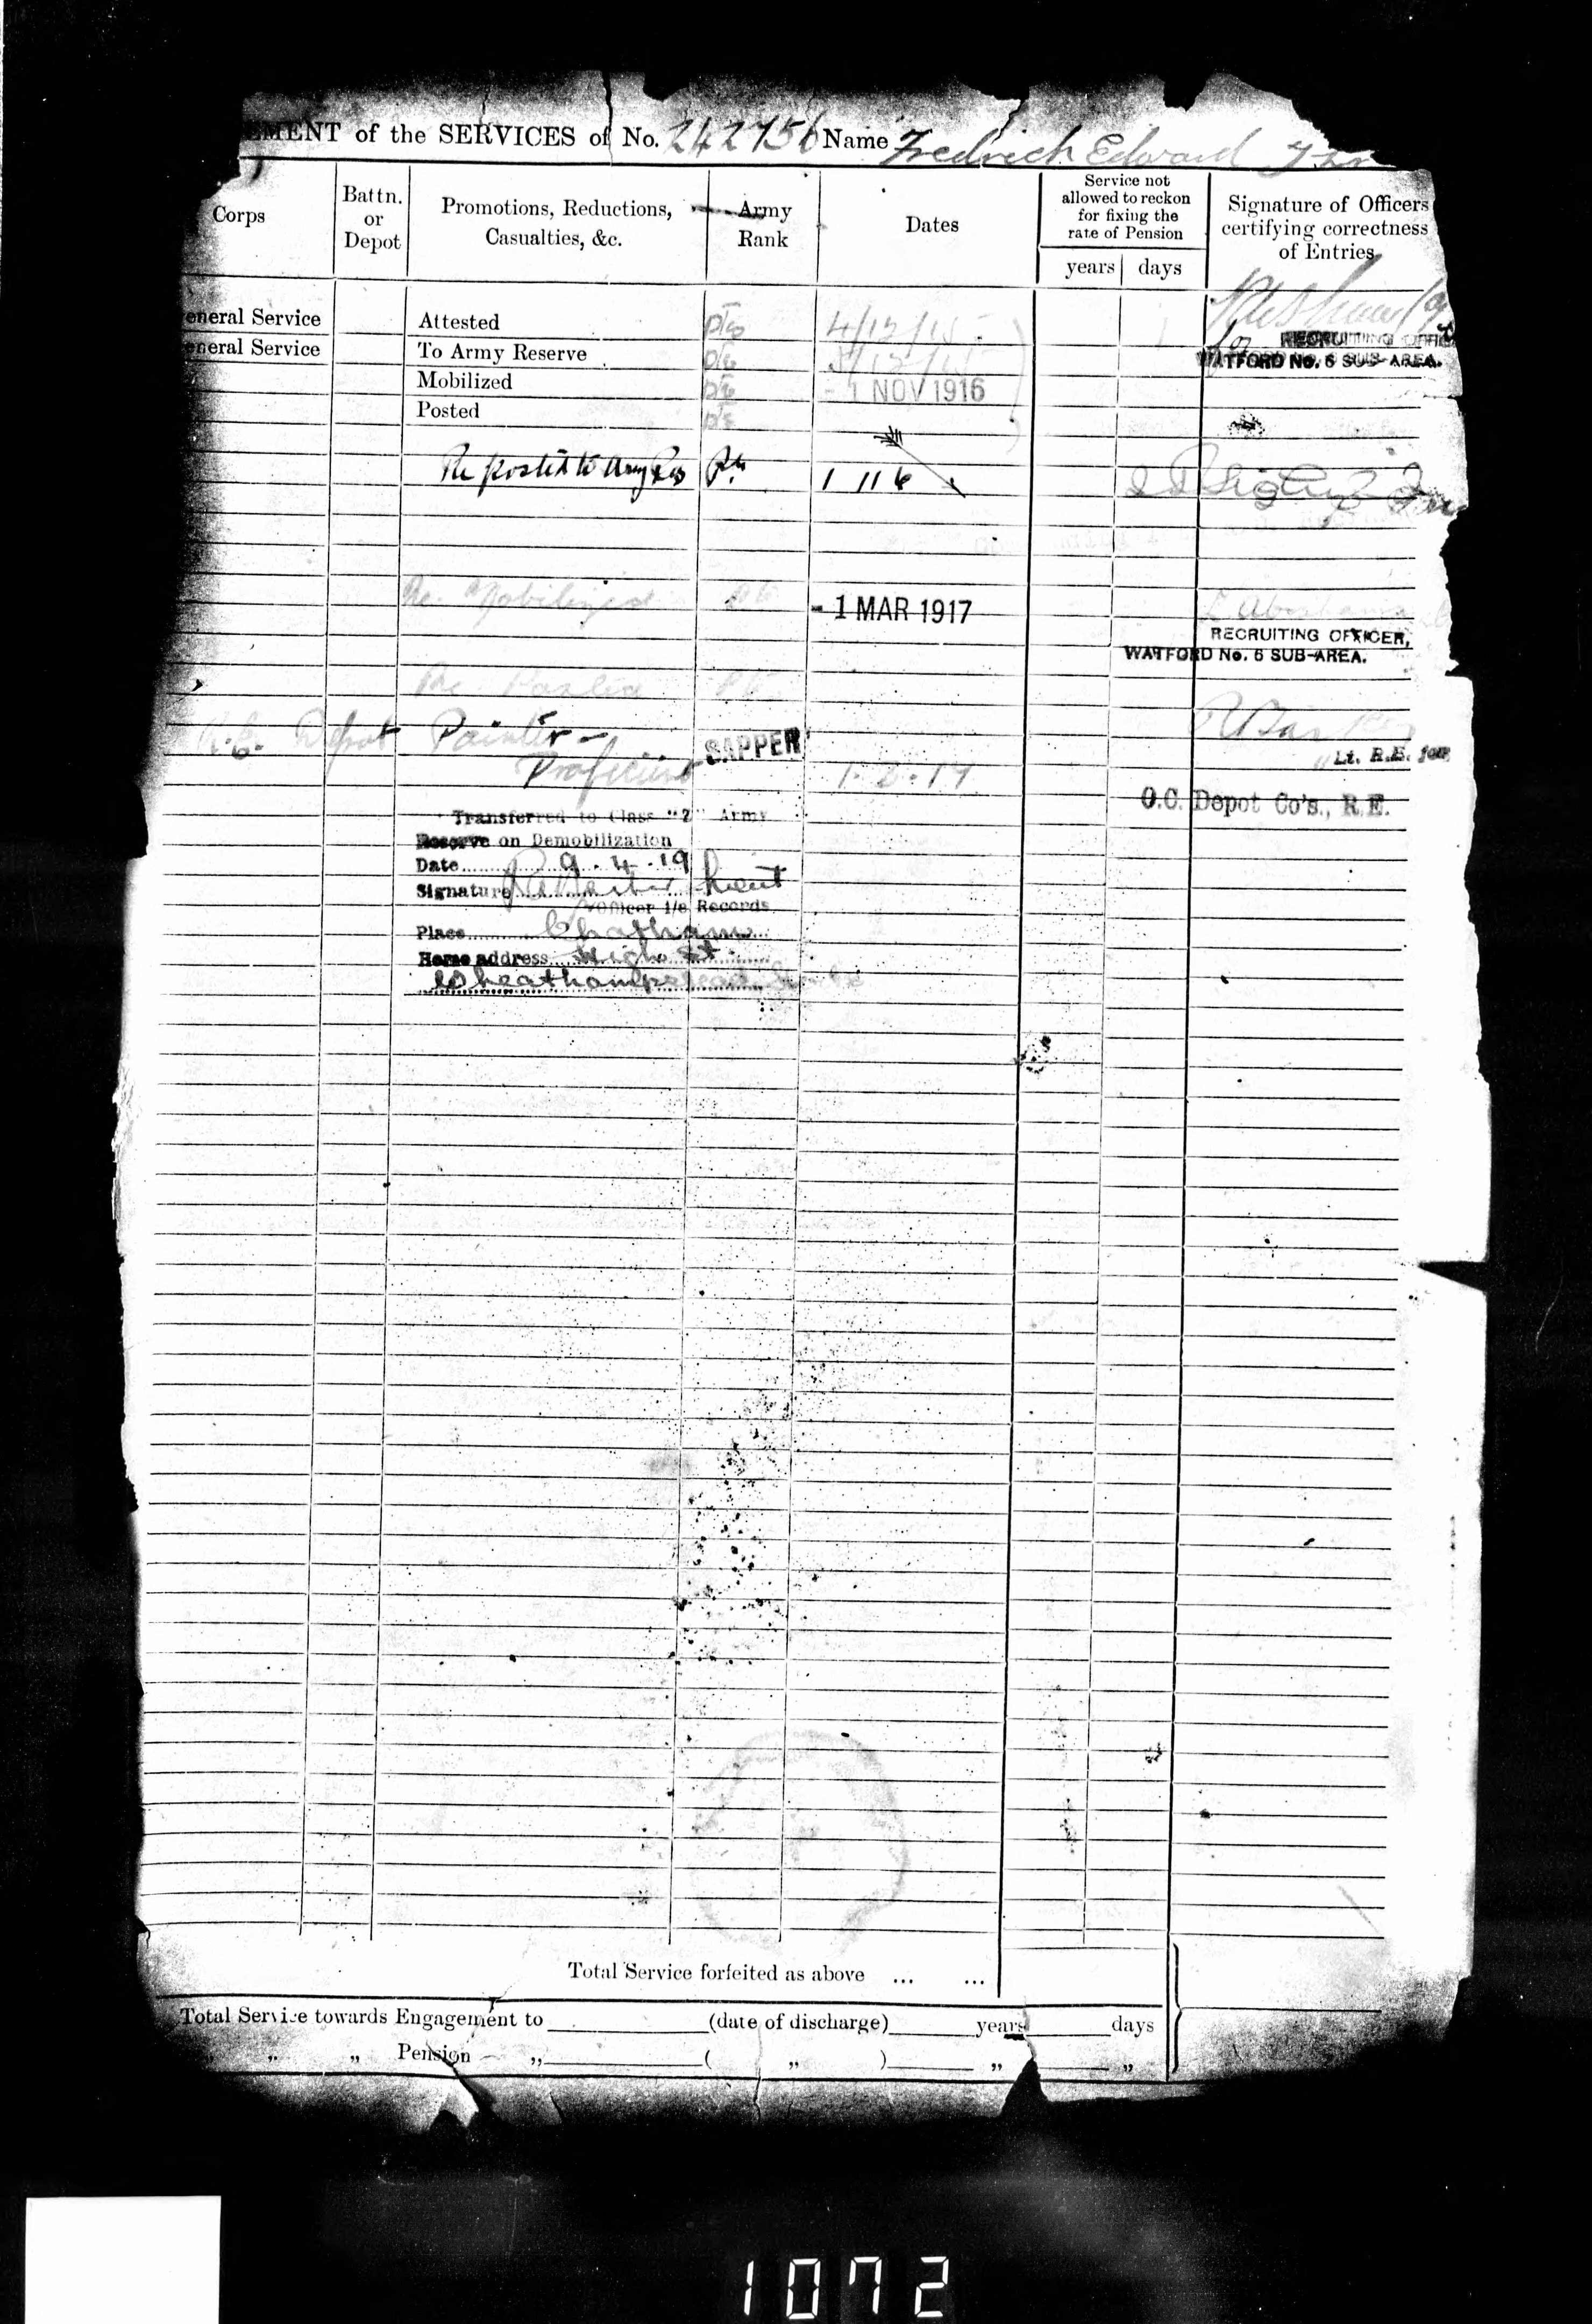 EMENT of the SERVICES of No. 242756 Name Fredrich Edward
Corps
Battn. or Depot
Promotions, Reductions, Casualties, &c.
Army Rank
Dates
Service not allowed to reckon for fixing the rate of Pension
years days
Signature of Officers certifying correctness of Entries
eneral Service Attested Pte 4/12/15
for RECRUITING OFFIC
eneral Service To Army Reserve Pte 5/12/15 WATFORD No. 6 SUB-AREA.
Mobilized Pte - 1 NOV 1916
Posted Pte
Re posted to Army Res Pte 1 11 6
Re. Mobilized Pte - 1 MAR 1917
RECRUITING OFFICER,
WATFORD No. 6 SUB-AREA.
Re Posted Pte
R.E. Depot Painter - SAPPER
Lt. R.E. for
Proficient 1. 17
O.C. Depot Co's., R.E.
Transferred to Class "Z" Army
Reserve on Demobilization
Date 9.4.19
Signature Lieut
Officer i/c Records
Place Chatham
Home address High St
Wheathampstead
Total Service forfeited as above ... ...
Total Service towards Engagement to (date of discharge) years days
„ „ Pension „ ( „ ) „ „
1072